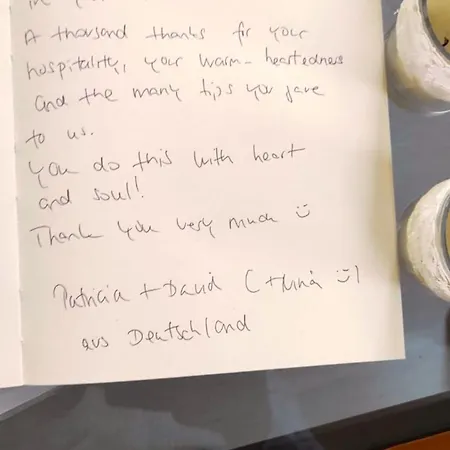 A thousand thanks for your
hospitality, your warm-heartedness
and the many tips you gave
to us.
You do this with heart
and soul!
Thank you very much ☺
Patricia + David (+ :))
aus Deutschland